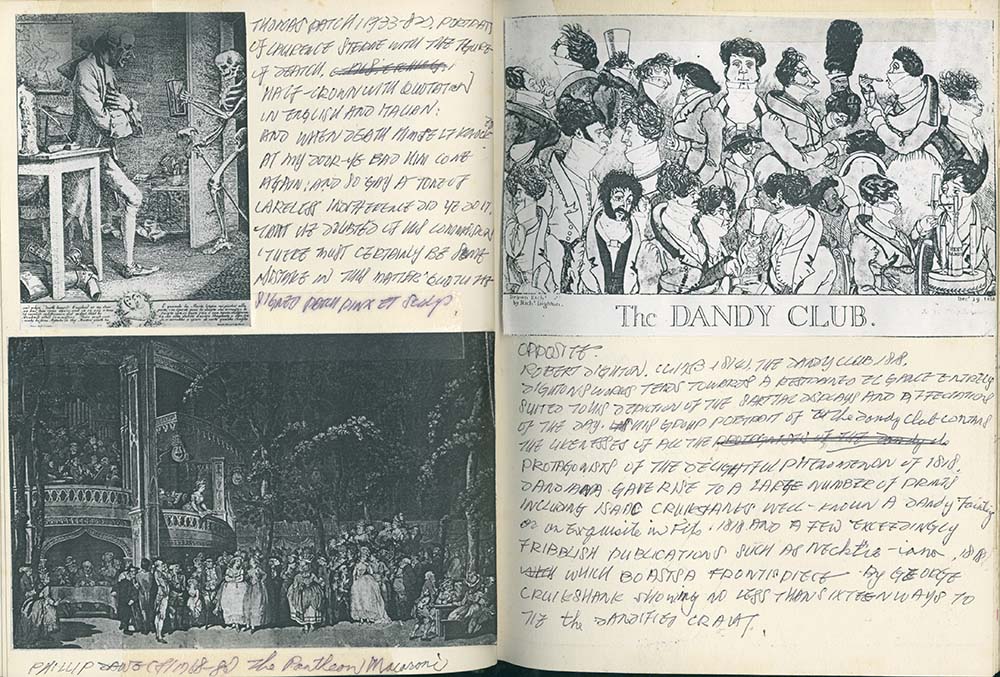 THOMAS PATCH, (1733-82), PORTRAIT
OF LAURENCE STERNE WITH THE FIGURE
OF DEATH.
HALF-CROWN WITH QUOTATION
IN ENGLISH AND ITALIAN:
AND WHEN DEATH HIMSELF KNOCKED
AT MY DOOR-YE BAD HIM COME
AGAIN; AND SO GAY A TONE OF
CARELESS INDIFFERENCE DID YE DO IT,
THAT HE DOUBTED OF HIS COMMISSION
'THERE MUST CERTAINLY BE SOME
MISTAKE IN THIS MATTER' QUOTH HE
SIGNED PATCH PINX ET Sculps.
PHILLIP DAWE (fl 1768-80) The Pantheon Macaroni
Drawn Etch'd
by Rich'd Dighton.
Decr 29 1818
The DANDY CLUB.
OPPOSITE.
ROBERT DIGHTON. (C1753-1814). THE DANDY CLUB, 1818.
DIGHTONS WORKS TENDS TOWARDS A RESTRAINED ELEGANCE ENTIRELY
SUITED TO HIS DEPICTION OF THE SARTIAL DISPLAYS AND AFFECTATIONS
OF THE DAY. HIS GROUP PORTRAIT OF the Dandy Club CONTAINS
THE LIKENESSES OF ALL THE PROTAGONISTS OF THE Dandy
PROTAGONISTS OF THE DELIGHTFUL PHENOMENON OF 1818.
DANDMANA GAVE RISE TO A LARGE NUMBER OF PRINTS
INCLUDING ISAAC CRUIKSHANKS WELL-KNOWN A DANDY Fainting
or an Exquisite in Fits, 1818 AND A FEW EXCEEDINGLY
FRIBBLISH PUBLICATIONS SUCH AS Necktie-iana, 1818,
WHICH BOASTS A FRONTISPIECE By GEORGE
CRUIKSHANK SHOWING NO LESS THAN SIXTEEN WAYS TO
TIE the DANDIFIED CRAVAT.